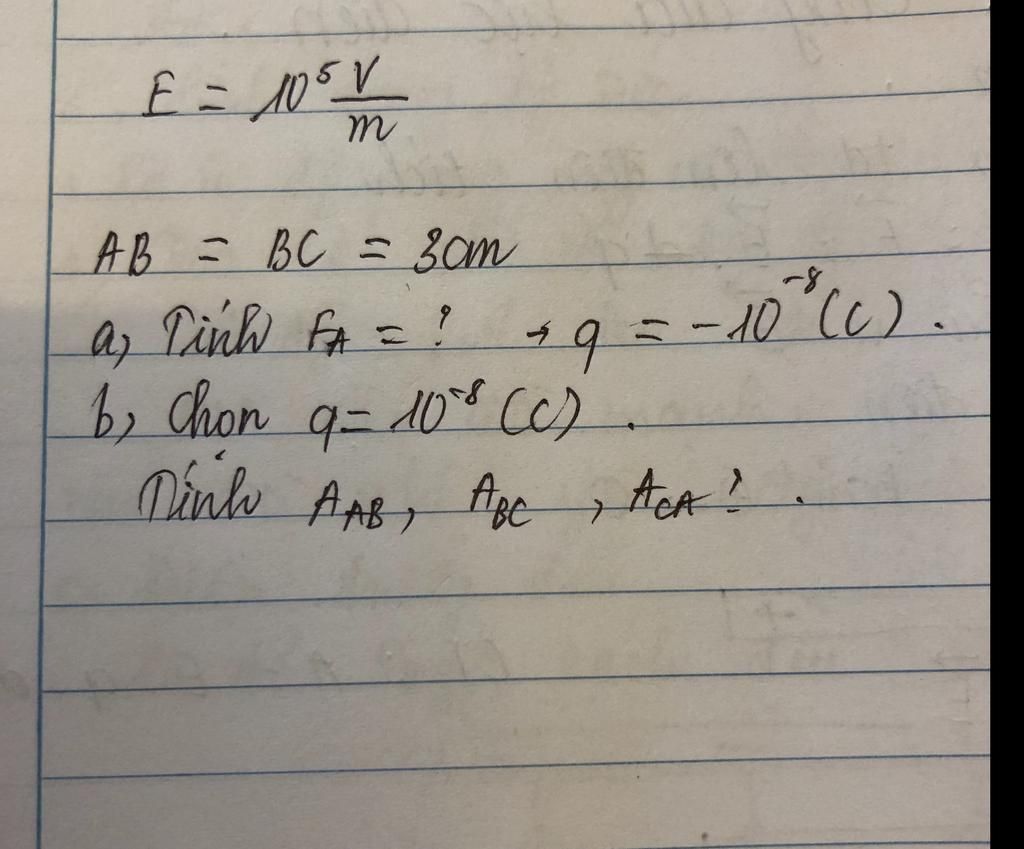 E = 10⁵ V/m
AB = BC = 3cm
a, Tính F_A = ? → q = -10⁻⁸ (C).
b, Chọn q = 10⁻⁸ (C).
Tính A_AB, A_BC, A_CA? .